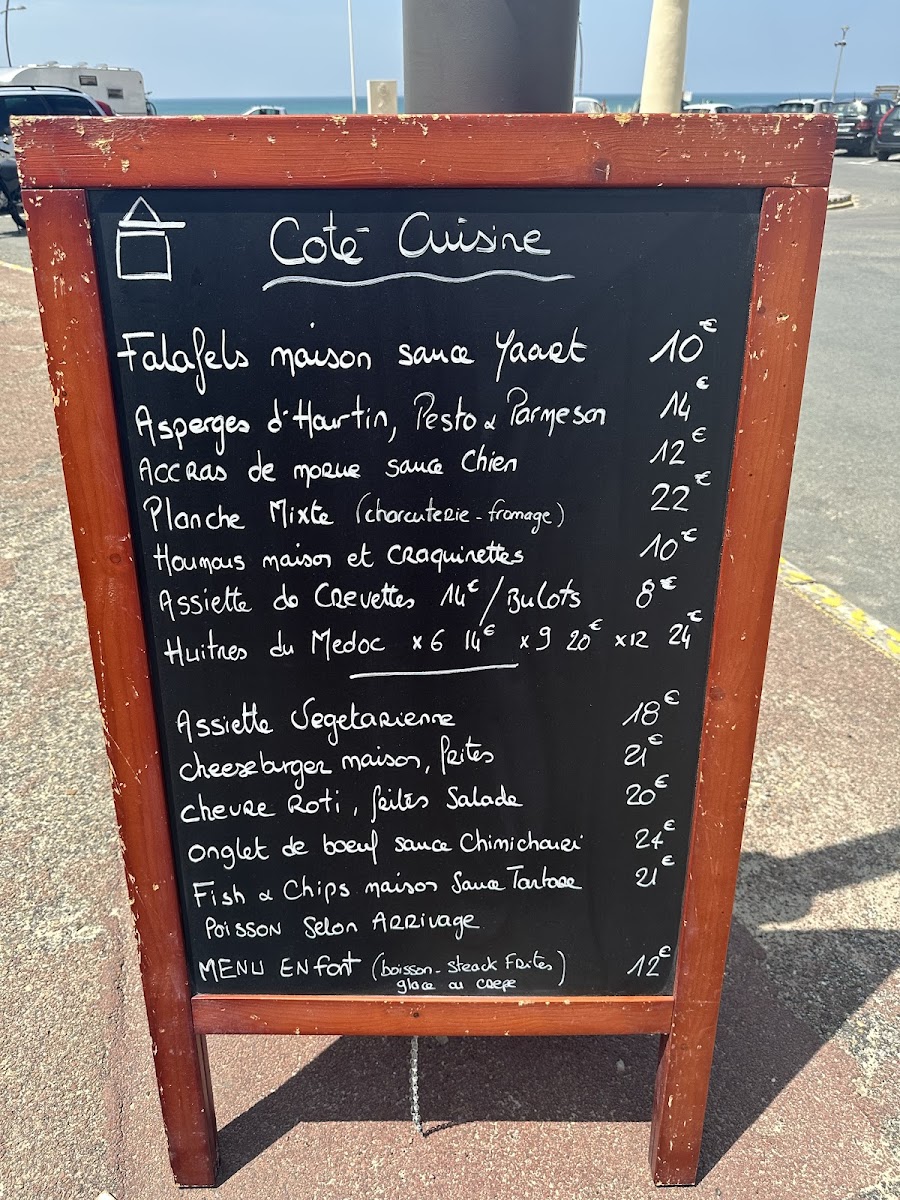 Coté Cuisine
Falafels maison sauce Yaourt 10€
Asperges d'Hourtin, Pesto & Parmesan 14€
Accras de morue sauce Chien 12€
Planche Mixte (charcuterie - fromage) 22€
Houmous maison et craquinettes 10€
Assiette de Crevettes 14€ / Bulots 8€
Huitres du Medoc x6 14€ x9 20€ x12 24€
Assiette Vegetarienne 18€
cheeseburger maison, frites 21€
chevre Roti, frites Salade 20€
onglet de boeuf sauce Chimichurri 24€
Fish & Chips maison Sauce Tartare 21€
Poisson Selon Arrivage
MENU ENfant (boisson - Steack Frites) 12€
glace ou crepe